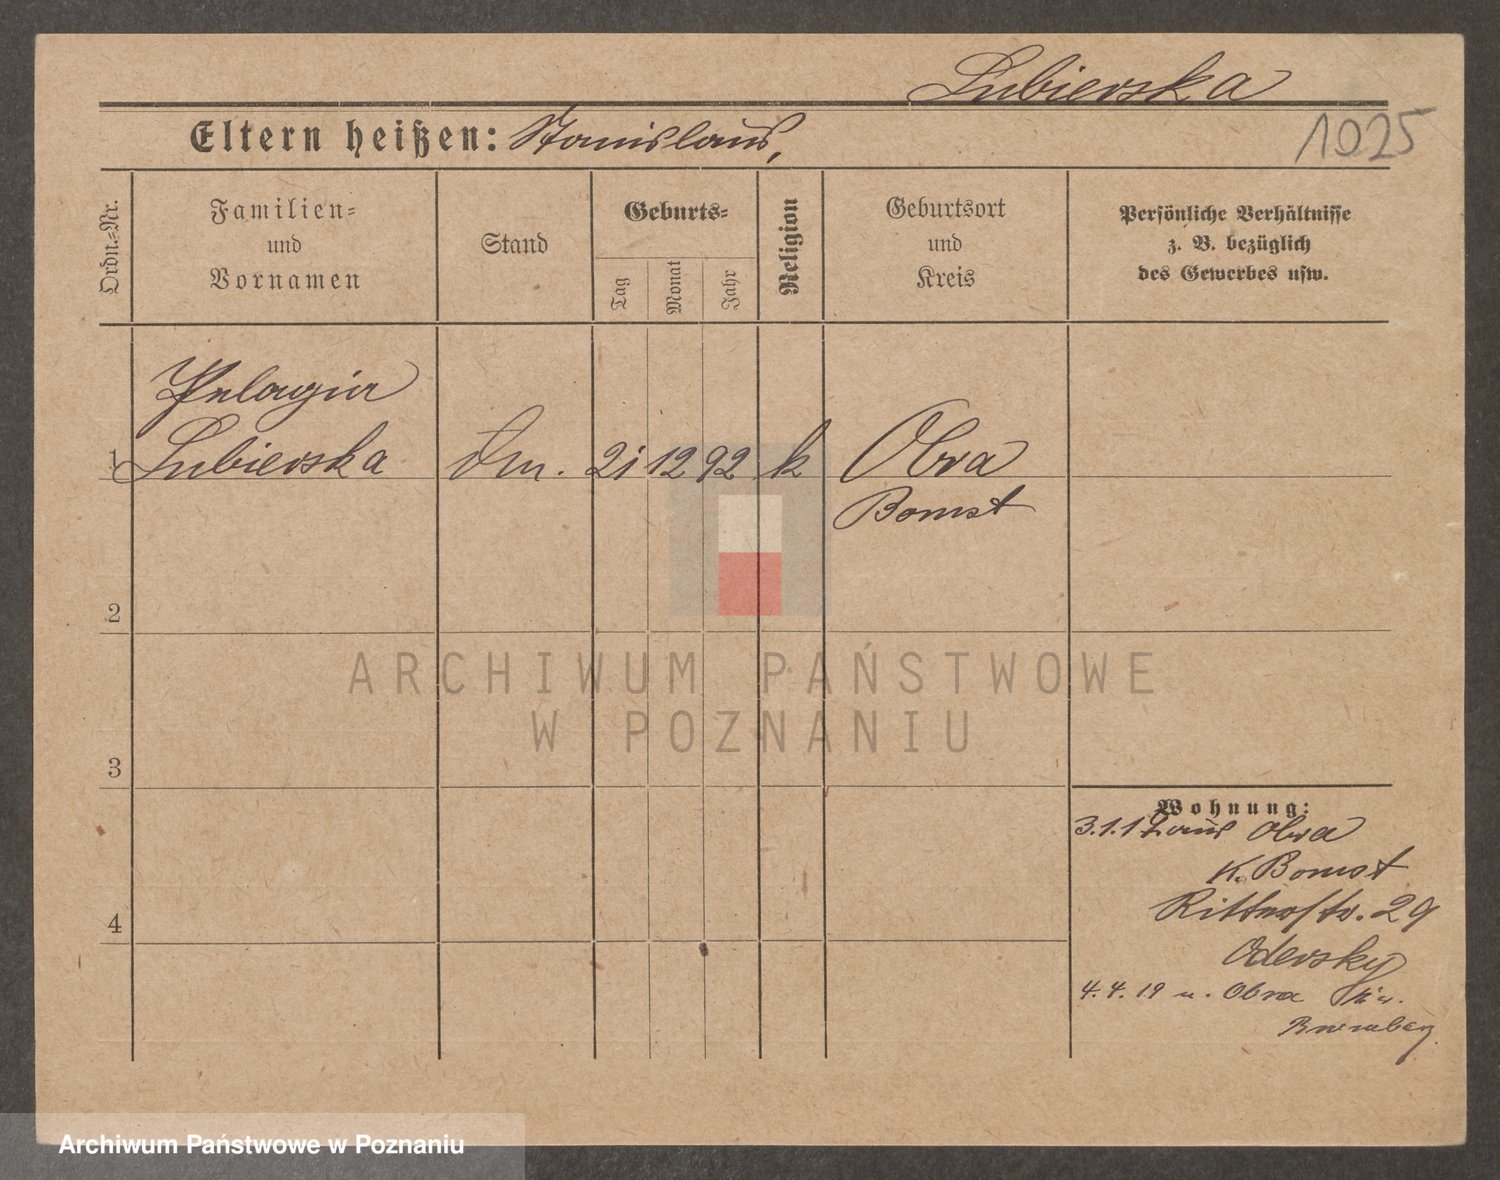 Lubierska
Eltern heißen: Stanislaus,
1025
Ordn.-Nr.
Familien-
und
Vornamen
Stand
Geburts-
Tag
Monat
Jahr
Religion
Geburtsort
und
Kreis
Persönliche Verhältnisse
z. B. bezüglich
des Gewerbes usw.
Pelagia
1 Lubierska
21 12 92 k Obra
Bomst
2
ARCHIWUM PAŃSTWOWE
W POZNANIU
3
4
Wohnung:
3.1.12 aus Obra
K. Bomst
Ritterstr. 29
Odersky
4.4.19 n. Obra
Archiwum Państwowe w Poznaniu